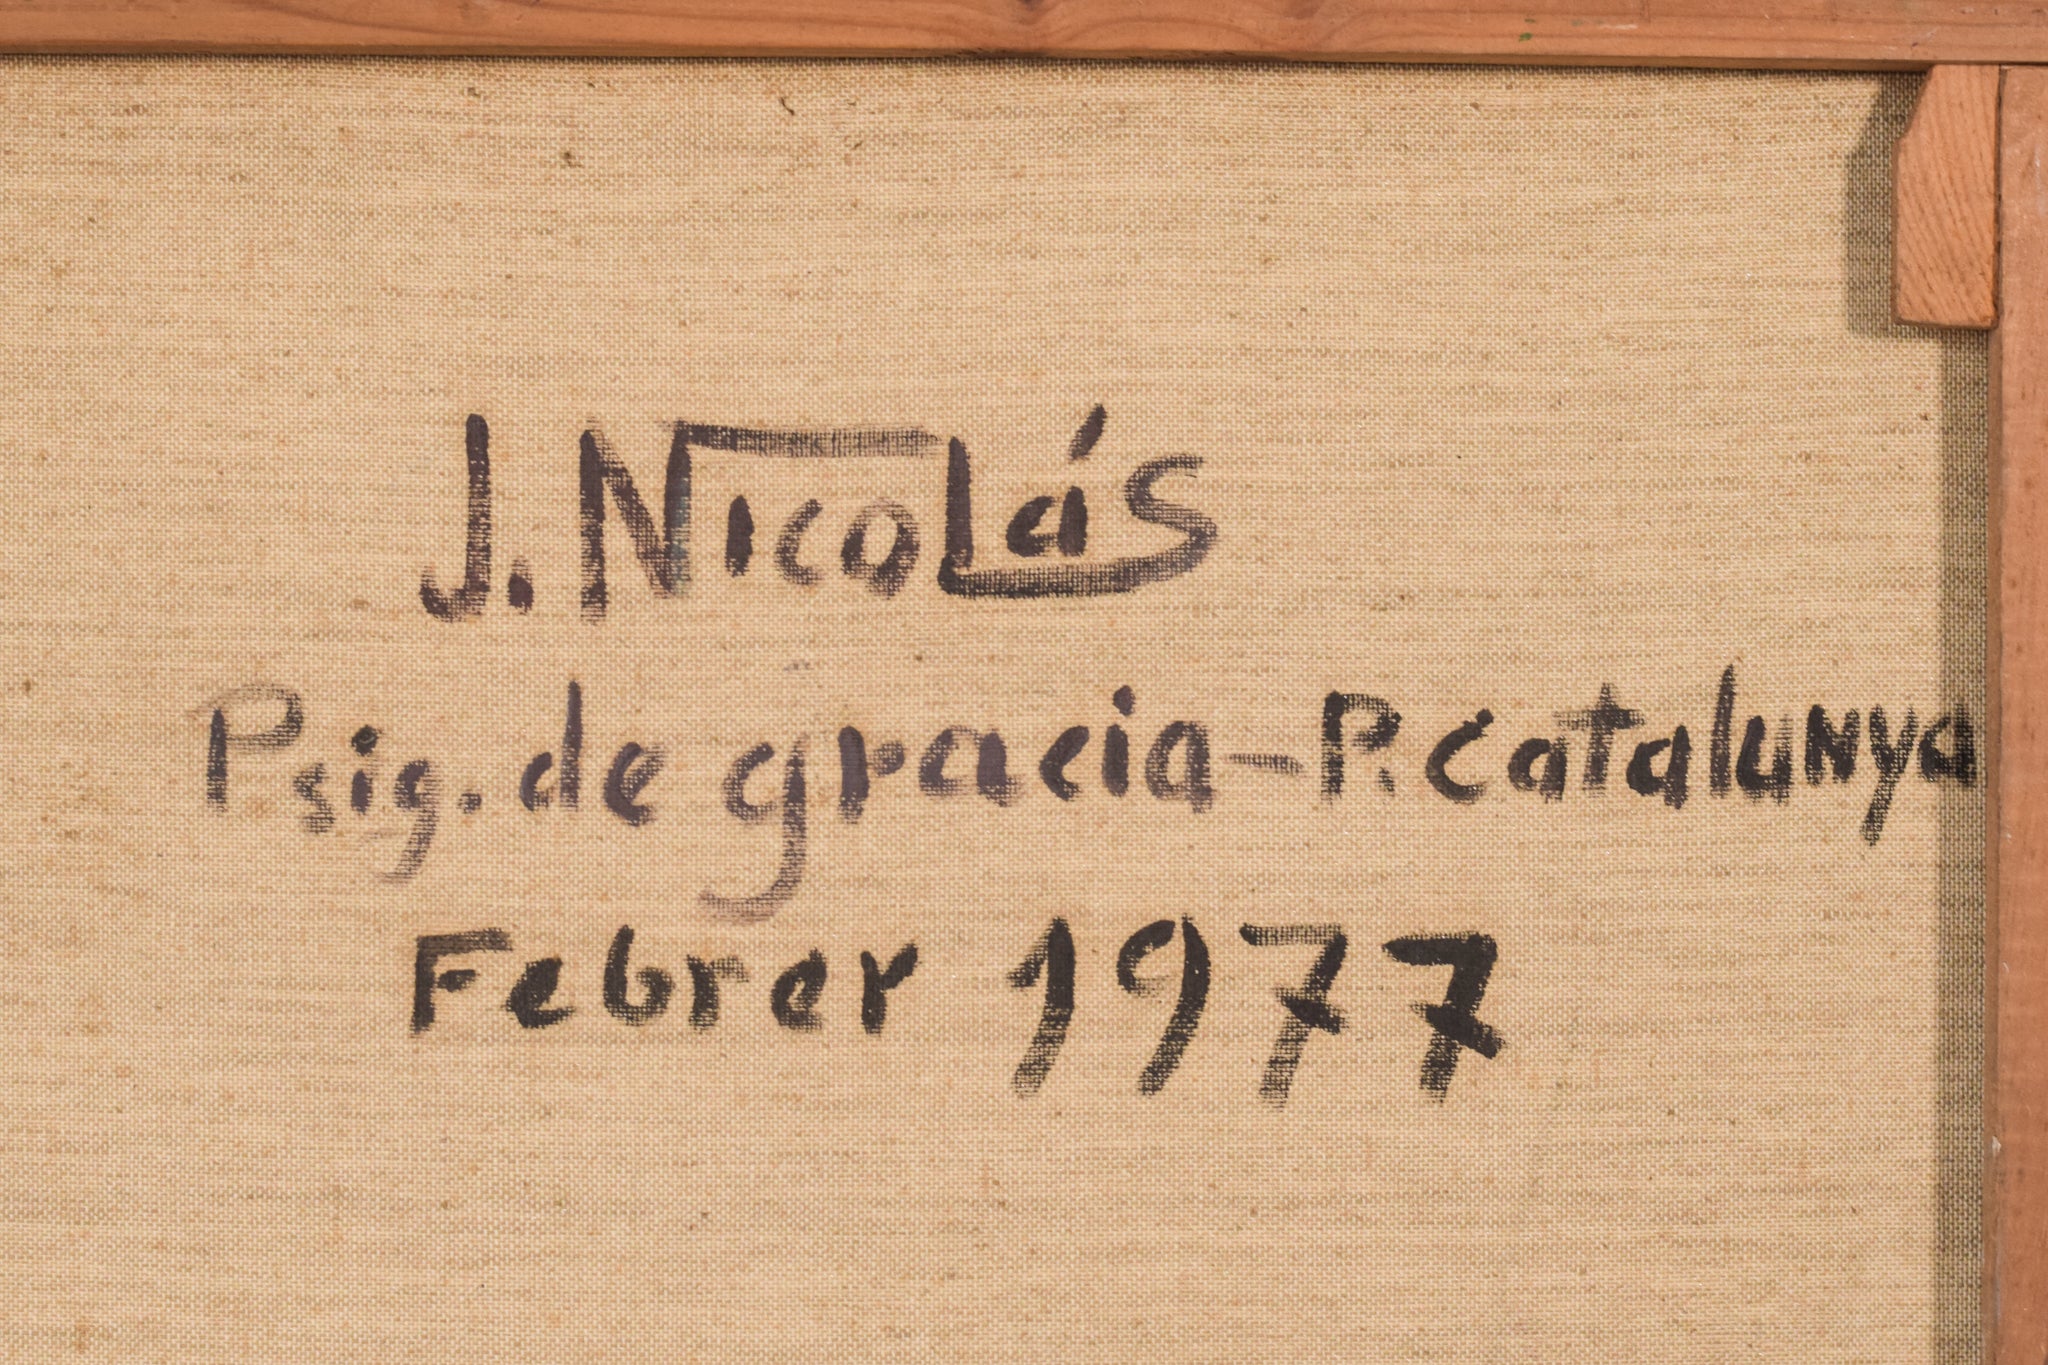 J. Nicolás
Psig. de gracia - P. Catalunya
Febrer 1977